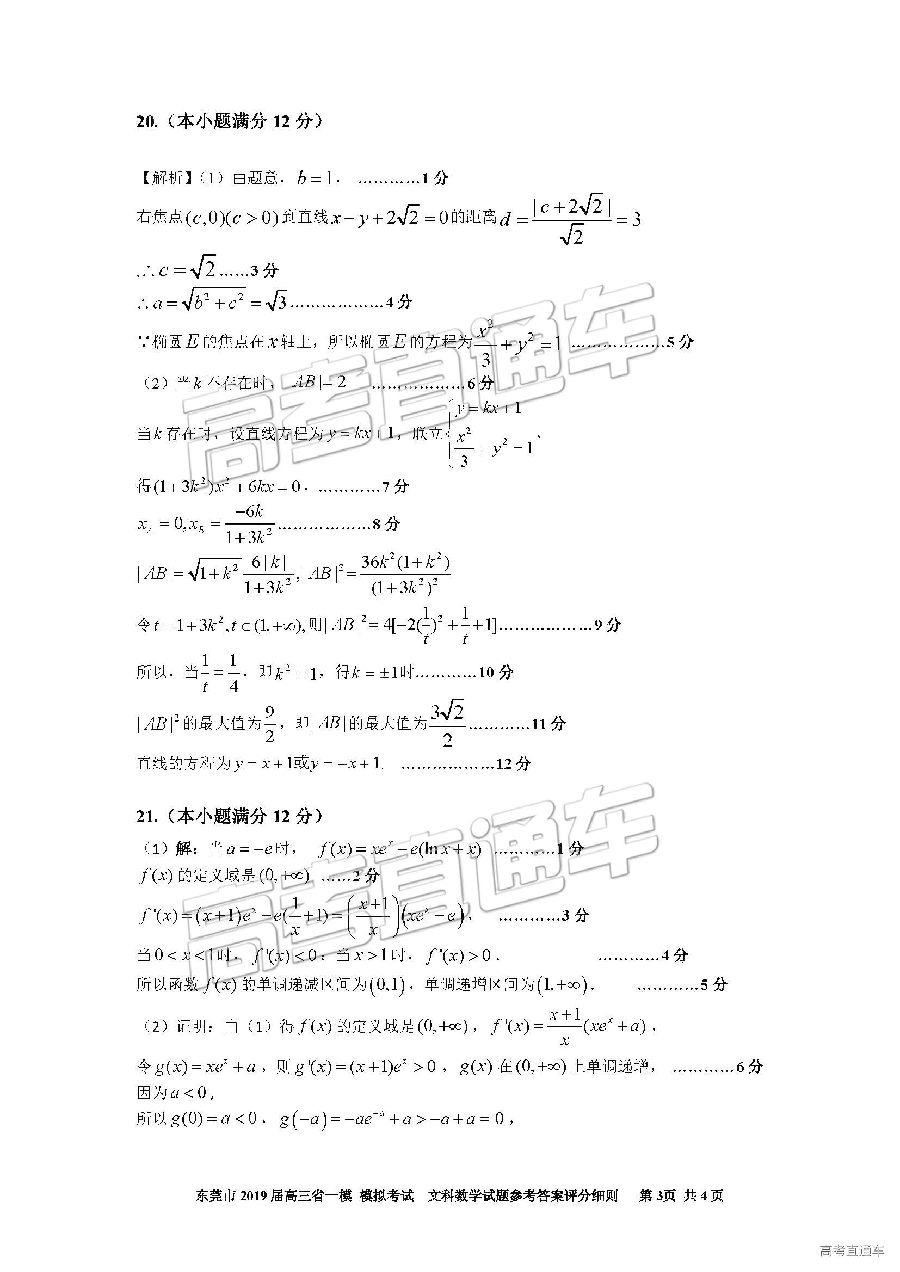 20.（本小题满分 12 分）
【解析】（1）由题意，b = 1， …………1 分
右焦点(c,0)(c > 0)到直线x − y + 2√2 = 0的距离d = |c + 2√2| / √2 = 3
∴c = √2……3 分
∴a = √(b² + c²) = √3………………4 分
∵椭圆E的焦点在x轴上，所以椭圆E的方程为x²/3 + y² = 1 ………………5 分
（2）当k不存在时，|AB| = 2 ………………6 分
当k存在时，设直线方程为y = kx + 1，联立{y = kx + 1, x²/3 + y² = 1,
得(1 + 3k²)x² + 6kx = 0，…………7 分
x_A = 0, x_B = −6k/(1 + 3k²)………………8 分
|AB| = √(1 + k²) 6|k|/(1 + 3k²), |AB|² = 36k²(1 + k²)/(1 + 3k²)²
令t = 1 + 3k², t∈(1,+∞), 则|AB|² = 4[−2(1/t)² + 1/t + 1]………………9 分
所以，当1/t = 1/4，即k² = 1，得k = ±1时…………10 分
|AB|²的最大值为9/2，即|AB|的最大值为3√2/2…………11 分
直线的方程为y = x + 1或y = −x + 1. ………………12 分
21.（本小题满分 12 分）
（1）解：当a = −e时， f(x) = xeˣ − e(ln x + x) …………1 分
f(x)的定义域是(0,+∞) ……2 分
f'(x) = (x+1)eˣ − e(1/x + 1) = ((x+1)/x)(xeˣ − e)， …………3 分
当0 < x < 1时，f'(x) < 0；当x > 1时，f'(x) > 0． …………4 分
所以函数f(x)的单调递减区间为(0,1)，单调递增区间为(1,+∞)． …………5 分
（2）证明：由（1）得f(x)的定义域是(0,+∞)，f'(x) = (x+1)/x (xeˣ + a)，
令g(x) = xeˣ + a，则g'(x) = (x+1)eˣ > 0，g(x)在(0,+∞)上单调递增， …………6 分
因为a < 0，
所以g(0) = a < 0，g(−a) = −ae⁻ᵃ + a > −a + a = 0，
东莞市 2019 届高三省一模 模拟考试 文科数学试题参考答案评分细则 第 3页 共 4 页
高考直通车
高考直通车
高考直通车